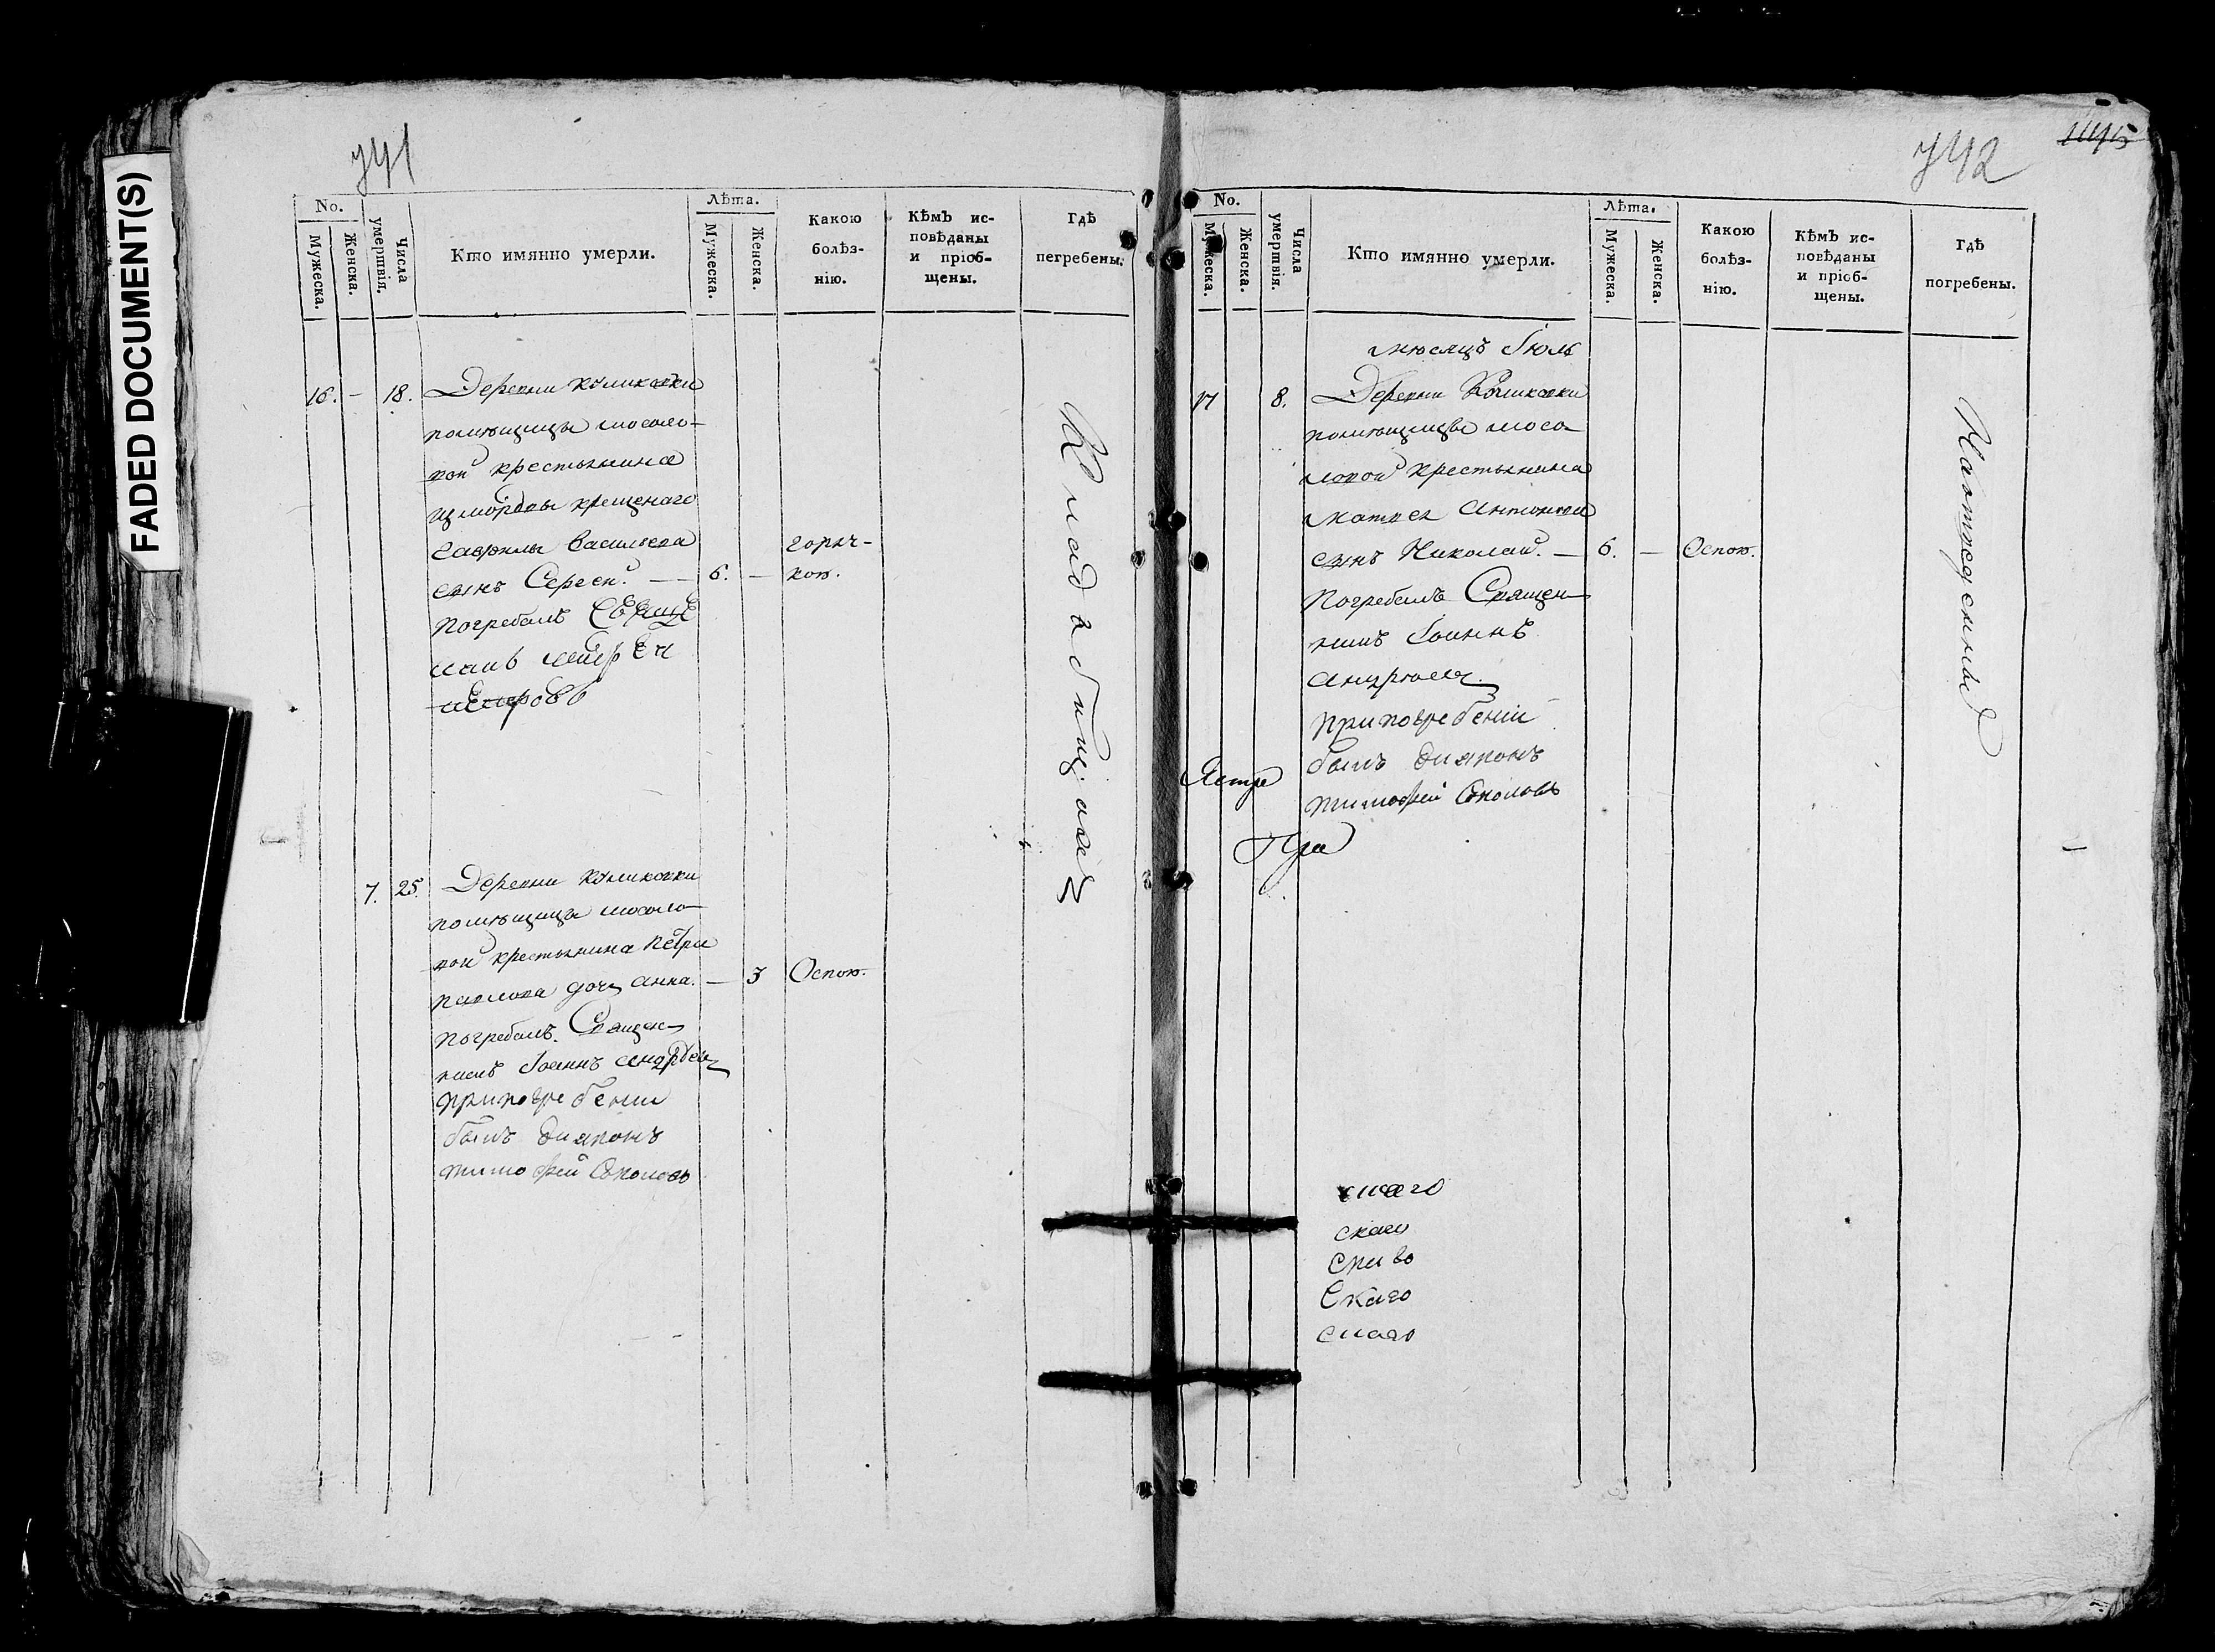 FADED DOCUMENT(S)
741
No.
Мужеска.
Женска.
Числа умертвія.
Кто имянно умерли.
Лѣта.
Мужеска.
Женска.
Какою болѣз-
нію.
Кѣмъ ис-
повѣданы
и пріоб-
щены.
Гдѣ
пегребены.
16. — 18. Деревни Куликовки
помѣщицы Мосоло-
вой крестьянина
измордвы крещенаго
Гаврилы Васильева
сынъ Сергей. — 6. — горяч-
кою.
погребалъ Свяще
7. 25. Деревни Куликовки
помѣщицы Мосоло-
вой крестьянина Петра
Павлова дочь Анна. — 3 Оспою.
погребалъ Священ-
никъ Іоаннъ Андреевъ
при погребеніи
былъ Дияконъ
Тимофей Соколовъ
На кладбище
742
1145
No.
Мужеска.
Женска.
Числа умертвія.
Кто имянно умерли.
Лѣта.
Мужеска.
Женска.
Какою
болѣз-
нію.
Кѣмъ ис-
повѣданы
и пріоб-
щены.
Гдѣ
погребены.
Мѣсяцъ Іюль
17 8. Деревни Куликовки
помѣщицы Мосо-
ловой крестьянина
Матвея Антонова
сынъ Николай. — 6. — Оспою.
Погребалъ Священ-
никъ Іоаннъ
Андреевъ
при погребеніи
былъ Дияконъ
Тимофей Соколовъ
скаго
скаго